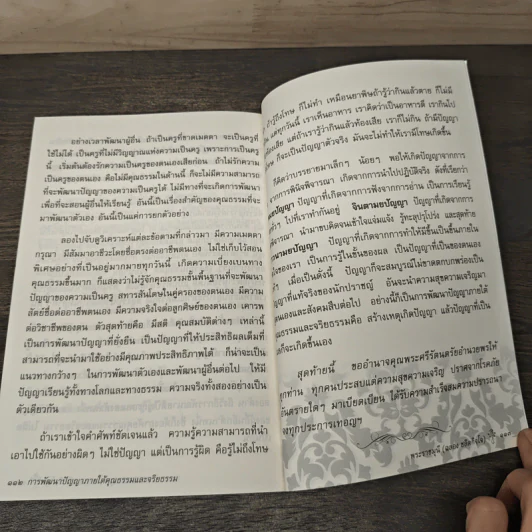 อย่างเวลาพัฒนาผู้อื่น ถ้าเป็นครูที่ขาดเมตตา จะเป็นครูที่
ใช้ไม่ได้ เป็นครูที่ไม่มีวิญญาณแห่งความเป็นครู เพราะการเป็นครู
นี้ เริ่มต้นต้องรักความเป็นครูของตนเองเสียก่อน ถ้าไม่รักความ
เป็นครูของตนเอง คือไม่มีคุณธรรมในด้านนี้ ก็จะไม่มีความสามารถ
ที่จะพัฒนาปัญญาของความเป็นครูได้ ไม่มีทางที่จะเกิดการพัฒนา
เพื่อที่จะสอนผู้อื่นให้เรียนรู้ อันนี้เป็นเรื่องสำคัญของคุณธรรมที่จะ
มาพัฒนาตัวเอง อันนี้เป็นแค่การยกตัวอย่าง
ลองไปจับดูวิเคราะห์แต่ละข้อตามที่กล่าวมา มีความเมตตา
กรุณา มีสัมมาอาชีวะโดยซื่อตรงต่ออาชีพตนเอง ไม่ใช่เก็บไว้สอน
พิเศษอย่างที่เป็นอยู่มากมายทุกวันนี้ เกิดความเบี่ยงเบนทาง
คุณธรรมขึ้นมาก ก็แสดงว่าไม่รู้จักคุณธรรมขั้นพื้นฐานที่จะพัฒนา
ปัญญาของความเป็นครู สทารสันโดษในคู่ครองของตนเอง มีความ
สัตย์ซื่อต่ออาชีพตนเอง มีความจริงใจต่อลูกศิษย์ของตนเอง เคารพ
ต่อวิชาชีพของตน ตัวสุดท้ายคือ มีสติ คุณสมบัติต่างๆ เหล่านี้
เป็นการพัฒนาปัญญาที่ยั่งยืน เป็นปัญญาที่ให้ประสิทธิผลเต็มที่
สามารถที่จะนำมาใช้อย่างมีคุณภาพประสิทธิภาพได้ ก็น่าจะเป็น
แนวทางกว้างๆ ในการพัฒนาตัวเองและพัฒนาผู้อื่นต่อไป ให้มี
ปัญญาเรียนรู้ทั้งทางโลกและทางธรรม ความจริงทั้งสองอย่างเป็น
ตัวเดียวกัน
ถ้าเราเข้าใจคำศัพท์ชัดเจนแล้ว ความรู้ความสามารถที่นำ
เอาไปใช้กันอย่างผิดๆ ไม่ใช่ปัญญา แต่เป็นการรู้ผิด คือรู้ไม่ถึงโทษ
๑๑๒ การพัฒนาปัญญาภายใต้คุณธรรมและจริยธรรม
ถ้ารู้ถึงโทษ ก็ไม่ทำ เหมือนยาพิษถ้ารู้ว่ากินแล้วตาย ก็ไม่มี
แต่ทุกวันนี้ เราเห็นอาหาร เราคิดว่าเป็นอาหารดี เรากินไป
เสีย แต่ถ้าเรารู้ว่ากินแล้วท้องเสีย เราก็ไม่กิน ถ้ามีปัญญา
ก็จะเป็นปัญญาตัวจริง มันจะไม่ทำให้เรามีโทษเกิดขึ้น
ก็คิดว่าบรรยายมาเล็กๆ น้อยๆ พอให้เกิดปัญญาจากการ
การพินิจพิจารณา เกิดจากการนำไปปฏิบัติจริง ดังที่เรียกว่า
ปัญญา ปัญญาที่เกิดจากการฟังจากการอ่าน เป็นการเรียนรู้
ไปที่เราทำกันอยู่ จินตามยปัญญา ปัญญาที่เกิดจากการ
การณา นำมาขบคิดจนเข้าใจแจ่มแจ้ง รู้ทะลุปรุโปร่ง และสุดท้าย
ปัญญา ปัญญาที่เกิดจากการทำให้มีขึ้นเป็นขึ้น
ของเรา เป็นการรู้ในขั้นของผล เป็นปัญญาที่เป็นของตนเอง
เมื่อเป็นดังนี้ ปัญญาก็จะสมบูรณ์ไม่ขาดตกบกพร่องเป็น
ปัญญาที่แท้จริงของนักปราชญ์ อันจะนำความสุขความเจริญมา
ตนเองและสังคมสืบต่อไป อย่างนี้ก็เป็นการพัฒนาปัญญาภายใต้
คุณธรรมและจริยธรรมคือ สร้างเหตุเกิดปัญญา แล้วปัญญาที่เป็น
ก็จะเกิดขึ้นเอง
สุดท้ายนี้ ขออำนาจคุณพระศรีรัตนตรัยอำนวยพรให้
ทุกท่าน ทุกคนประสบแต่ความสุขความเจริญ ปราศจากโรคภัย
อันตรายใดๆ มาเบียดเบียน ได้รับความสำเร็จสมความปรารถนา
ทุกประการเทอญฯ